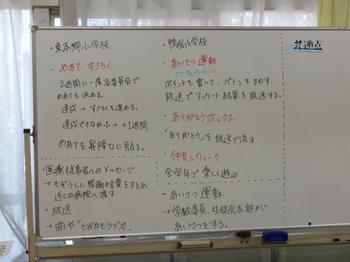 ・東本郷小学校
めあて すごろく
2週間に一度各委員会で
めあてを決める。
達成→すごろくを進める。
達成できなかった→+1週間
めあてを昇降口に貼る。
・医療従事者へのメッセージ
→もぞうしに感謝の言葉をまとめ
近くの病院へ渡す
・放送
→曲や「ヒガカモラジオ」
・鴨居小学校
あいさつ運動
ポイントを書いて、バトンをまわす。
放送でアンケート結果を放送する。
ありがとうボックス
"ありがとう"を放送で流す
仲良しウィーク
全学年で楽しく遊ぶ
あいさつ運動
→学級委員、生徒会本部が
あいさつをする。
共通点